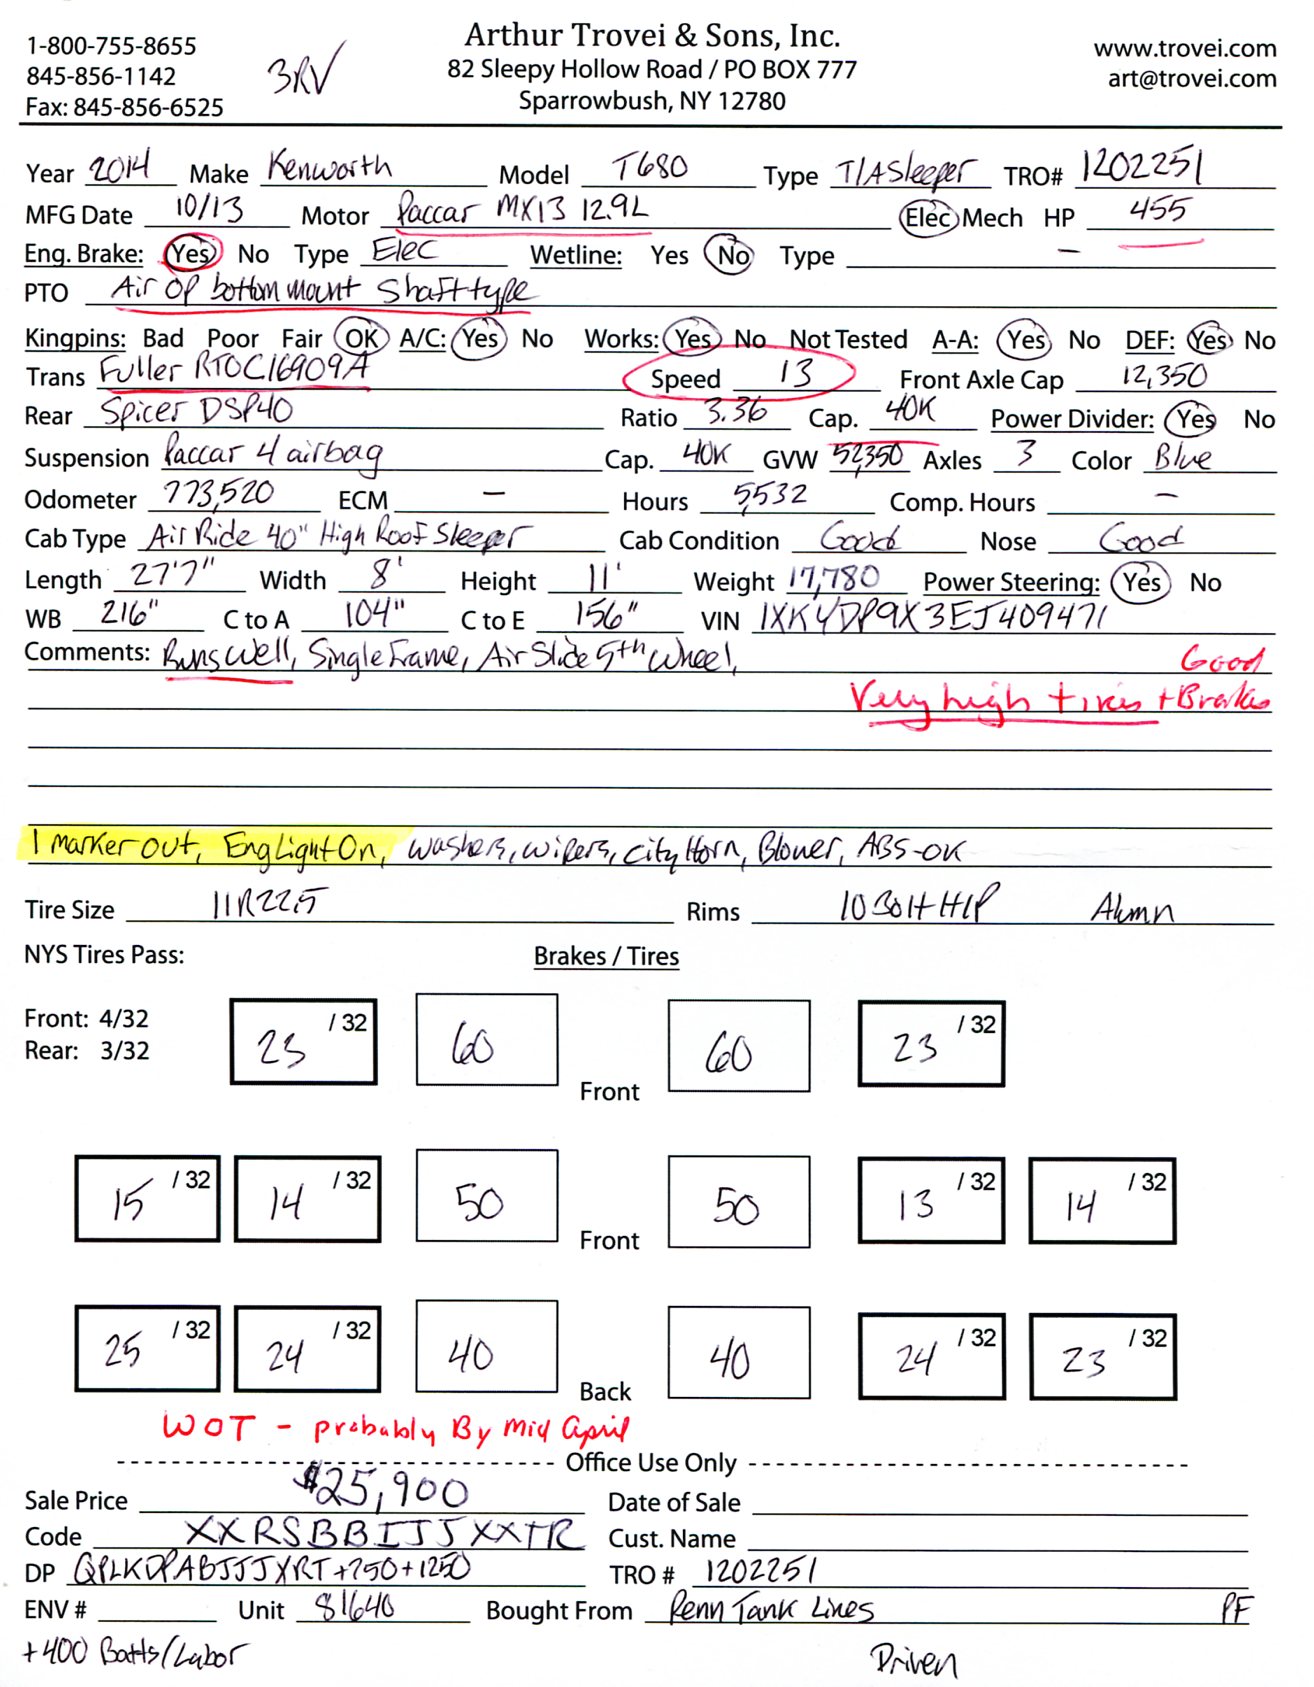 1-800-755-8655
845-856-1142
Fax: 845-856-6525
3RV
Arthur Trovei & Sons, Inc.
82 Sleepy Hollow Road / PO BOX 777
Sparrowbush, NY 12780
www.trovei.com
art@trovei.com
Year 2014 Make Kenworth Model T680 Type T/A Sleeper TRO# 1202251
MFG Date 10/13 Motor Paccar MX13 12.9L Elec Mech HP 455
Eng. Brake: Yes No Type Elec Wetline: Yes No Type —
PTO Air Op bottom mount Shaft type
Kingpins: Bad Poor Fair OK A/C: Yes No Works: Yes No Not Tested A-A: Yes No DEF: Yes No
Trans Fuller RTOC16909A Speed 13 Front Axle Cap 12,350
Rear Spicer DSP40 Ratio 3.36 Cap. 40K Power Divider: Yes No
Suspension Paccar 4 airbag Cap. 40K GVW 52,350 Axles 3 Color Blue
Odometer 773,520 ECM — Hours 5,532 Comp. Hours —
Cab Type Air Ride 40" High Roof Sleeper Cab Condition Good Nose Good
Length 27'7" Width 8' Height 11' Weight 17,780 Power Steering: Yes No
WB 216" C to A 104" C to E 156" VIN 1XKYDP9X3EJ409471
Comments: Runs Well, Single Frame, Air Slide 5th Wheel, Good
Very high tires + Brakes
1 marker out, Eng Light On, washers, wipers, City Horn, Blower, ABS-OK
Tire Size 11R22.5 Rims 10 Bolt H/P Alumn
NYS Tires Pass: Brakes / Tires
Front: 4/32
Rear: 3/32
23 /32 60 Front 60 23 /32
15 /32 14 /32 50 Front 50 13 /32 14 /32
25 /32 24 /32 40 Back 40 24 /32 23 /32
WOT - probably By Mid April
Office Use Only
Sale Price $25,900 Date of Sale
Code XXRSBBIJJXXTR Cust. Name
DP QPLKDPABJJJXRT+750+1250 TRO # 1202251
ENV # Unit 81640 Bought From Penn Tank Lines PF
+400 Batts/Labor Driven